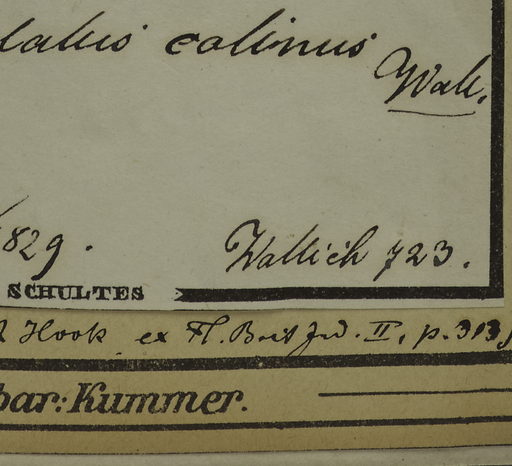 calinus
Wall.
1829.
Wallich 723.
SCHULTES
Hook ex Fl. Brit Ind. II, p. 313
bar: Kummer.